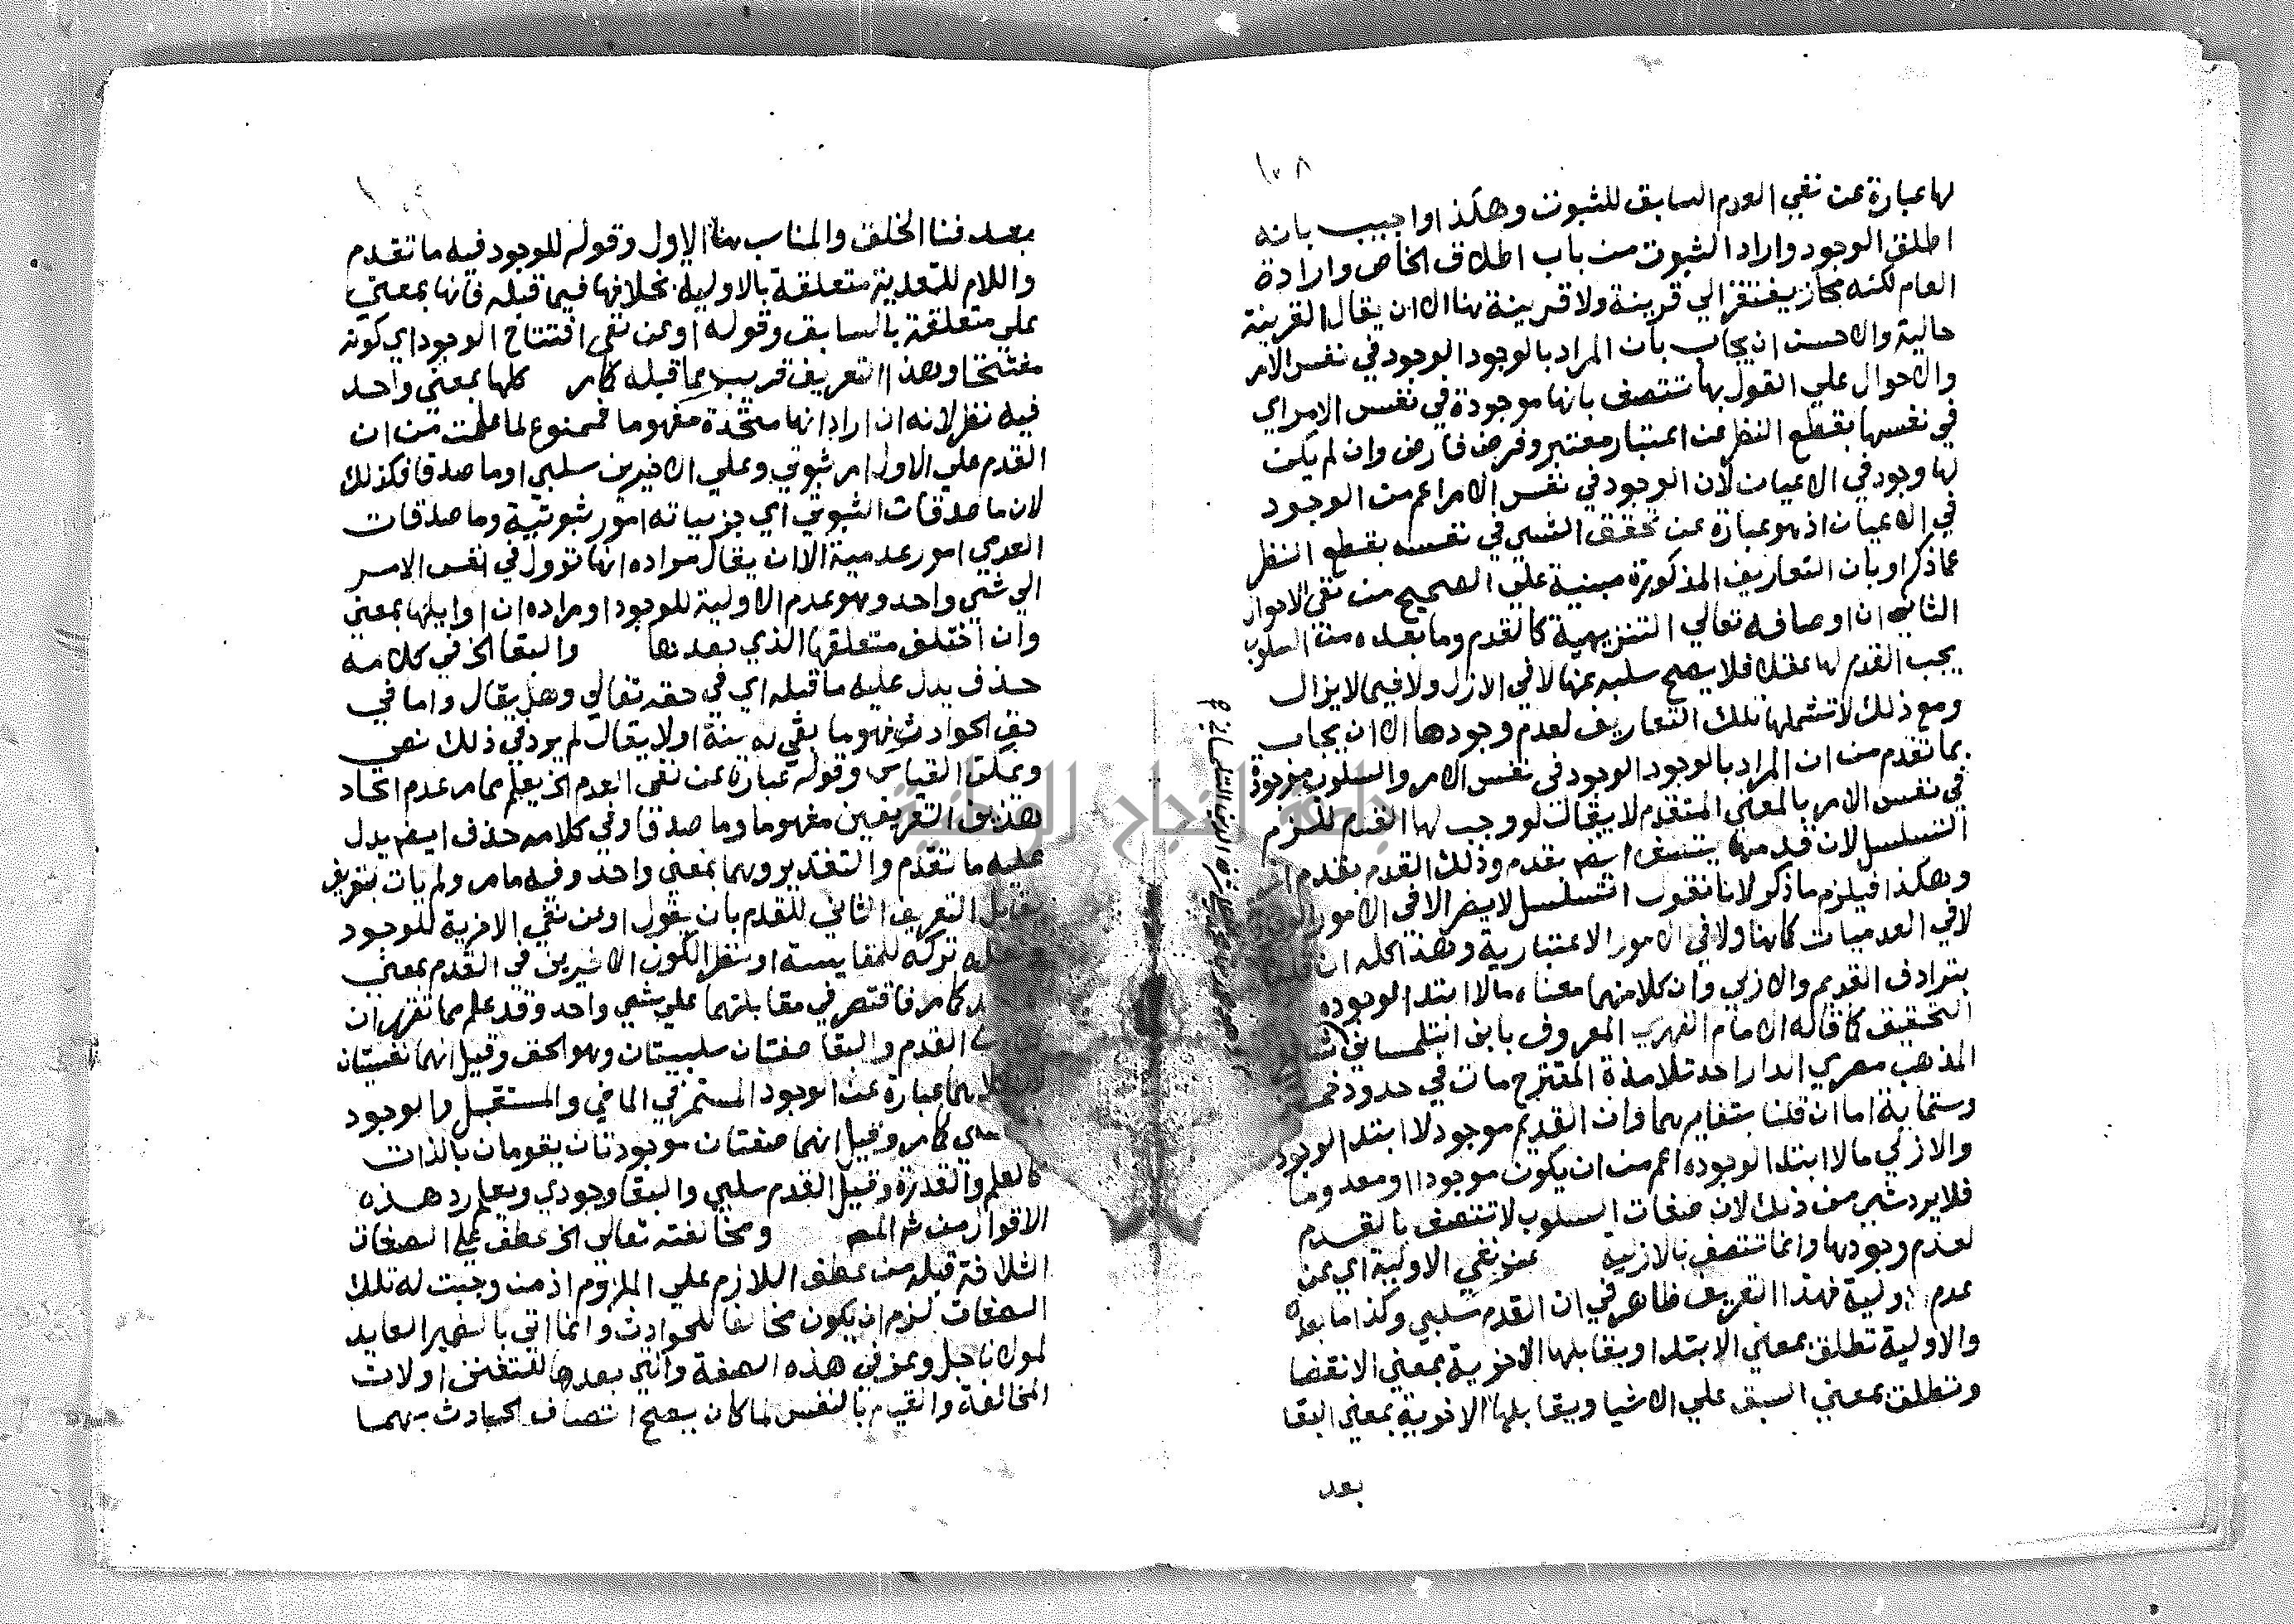 ١٠٨
لها عبارة عن نفي العدم السابق للثبوت وهكذا واجيب بانه
اطلق الوجود واراد الثبوت من باب اطلاق الخاص وارادة
العام لكنه مجاز يفتقر الي قرينة ولا قرينة هنا الا ان يقال القرينة
حالية والاحسن ان يجاب بان المراد بالوجود الوجود في نفس الامر
والاحوال علي القول بها تتصف بانها موجودة في نفس الامر اي
في نفسها بقطع النظر عن اعتبار معتبر وفرض فارض وان لم يكن
لها وجود في الاعيان لان الوجود في نفس الامر اعم من الوجود
في الاعيان اذ هو عبارة عن تحقق الشي في نفسه بقطع النظر
عما ذكر او بان التعاريف المذكورة مبنية علي الصحيح من نفي الاحوال
الثاني ان اوصافه تعالي التنزيهية كالقدم وما بعده من السلوب
يجب القدم لها عقلا فلا يصح سلبه عنها لا في الازل ولا فيما لا يزال
ومع ذلك لا تشملها تلك التعاريف لعدم وجودها الا ان يجاب
بما تقدم من ان المراد بالوجود الوجود في نفس الامر والسلوب موجودة
في نفس الامر بالمعني المتقدم لا يقال لو وجب لها القدم للزم
التسلسل لان قدمها يتصف ايضا بقدم وذلك القدم بقدم
وهكذا فيلزم ما ذكر لانا نقول التسلسل لا يضر الا في الامور
لا في العدميات كما هنا ولا في الامور الاعتبارية وهذا كله ان
بترادف القديم والازلي وان كلا منهما معناه ما لا ابتدا لوجوده
التحقيق كما قاله الامام الفهري المعروف بابن التلمساني
المذهب مصري الدار احد تلامذة المقترح مات في حدود
وستماية اما ان قلنا بتغايرهما وان القديم موجود لا ابتدا لوجوده
والازلي ما لا ابتدا لوجوده اعم من ان يكون موجودا او معدوما
فلا يرد شي من ذلك لان صفات السلوب لا تتصف بالقدم
لعدم وجودها وانما تتصف بالازلية عن نفي الاولية اي عن
عدم اولية فهذا التعريف ظاهر في ان القدم سلبي وكذا ما بعده
والاولية تطلق بمعني الابتدا ويقابلها الاخرية بمعني الانقضا
وتطلق بمعني السبق علي الاشيا ويقابلها الاخرية بمعني البقا
بعد
بعد فنا الخلق والمناسب هنا الاول وقوله للوجود فيه ما تقدم
واللام للتعدية متعلقة بالاولية بخلافها فيما قبله فانها بمعني
علي متعلقة بالسابق وقوله او عن نفي افتتاح الوجود اي كونه
مفتتحا وهذا التعريف قريب مما قبله كما مر كلها بمعني واحد
فيه نظر لانه ان اراد انها متحدة مفهوما فممنوع لما علمت من ان
القدم علي الاول امر ثبوتي وعلي الاخيرين سلبي او ما صدقا فكذلك
لان ما صدقات الثبوتي اي جزيياته امور ثبوتية وما صدقات
العدمي امور عدمية الا ان يقال مراده انها تؤول في نفس الامر
الي شي واحد وهو عدم الاولية للوجود او مراده ان اوايلها بمعني
وان اختلف متعلقها الذي بعدها والبقا الخ في كلامه
حذف يدل عليه ما قبله اي في حقه تعالي وهل يقال واما في
حق الحوادث فهو ما بقي له سنة اولا يقال لم يرد في ذلك نص
ويمكن القياس وقوله عبارة عن نفي العدم الخ يعلم مما مر عدم اتحاد
هذين التعريفين مفهوما وما صدقا وفي كلامه حذف ايضا يدل
عليه ما تقدم والتقدير وهما بمعني واحد وفيه ما مر ولم يات بتعريف
يقابل التعريف الثاني للقدم بان يقول او عن نفي الاخرية للوجود
تركه للمقايسة او نظر لكون الاخيرين في القدم بمعني
كما مر فاقتصر في مقابلتهما علي شي واحد وقد علم مما تقرر ان
القدم والبقا صفتان سلبيتان وهو الحق وقيل انهما نفسيتان
عبارة عن الوجود المستمر في الماضي والمستقبل والوجود
كما مر وقيل انهما صفتان موجودتان يقومان بالذات
كالعلم والقدرة وقيل القدم سلبي والبقا وجودي ويعلم رد هذه
الاقوال من شرح المص ومخالفته تعالي الخ عطف علي الصفات
الثلاثة قبله من عطف اللازم علي الملزوم اذ من وجبت له تلك
الصفات لزم ان يكون مخالفا للحوادث وانما اتي بالضمير العايد
لمولانا جل وعز في هذه الصفة والتي بعدها للتفنن او لان
المخالفة والقيام بالنفس لما كان يصح اتصاف الحادث بهما